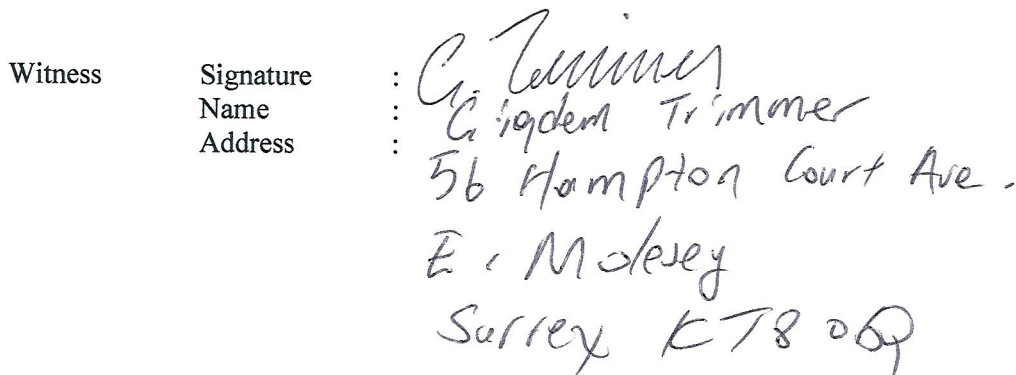 Witness Signature : C. Trimmer
Name : Cigdem Trimmer
Address :
56 Hampton Court Ave.
E. Molesey
Surrey KT8 0BQ